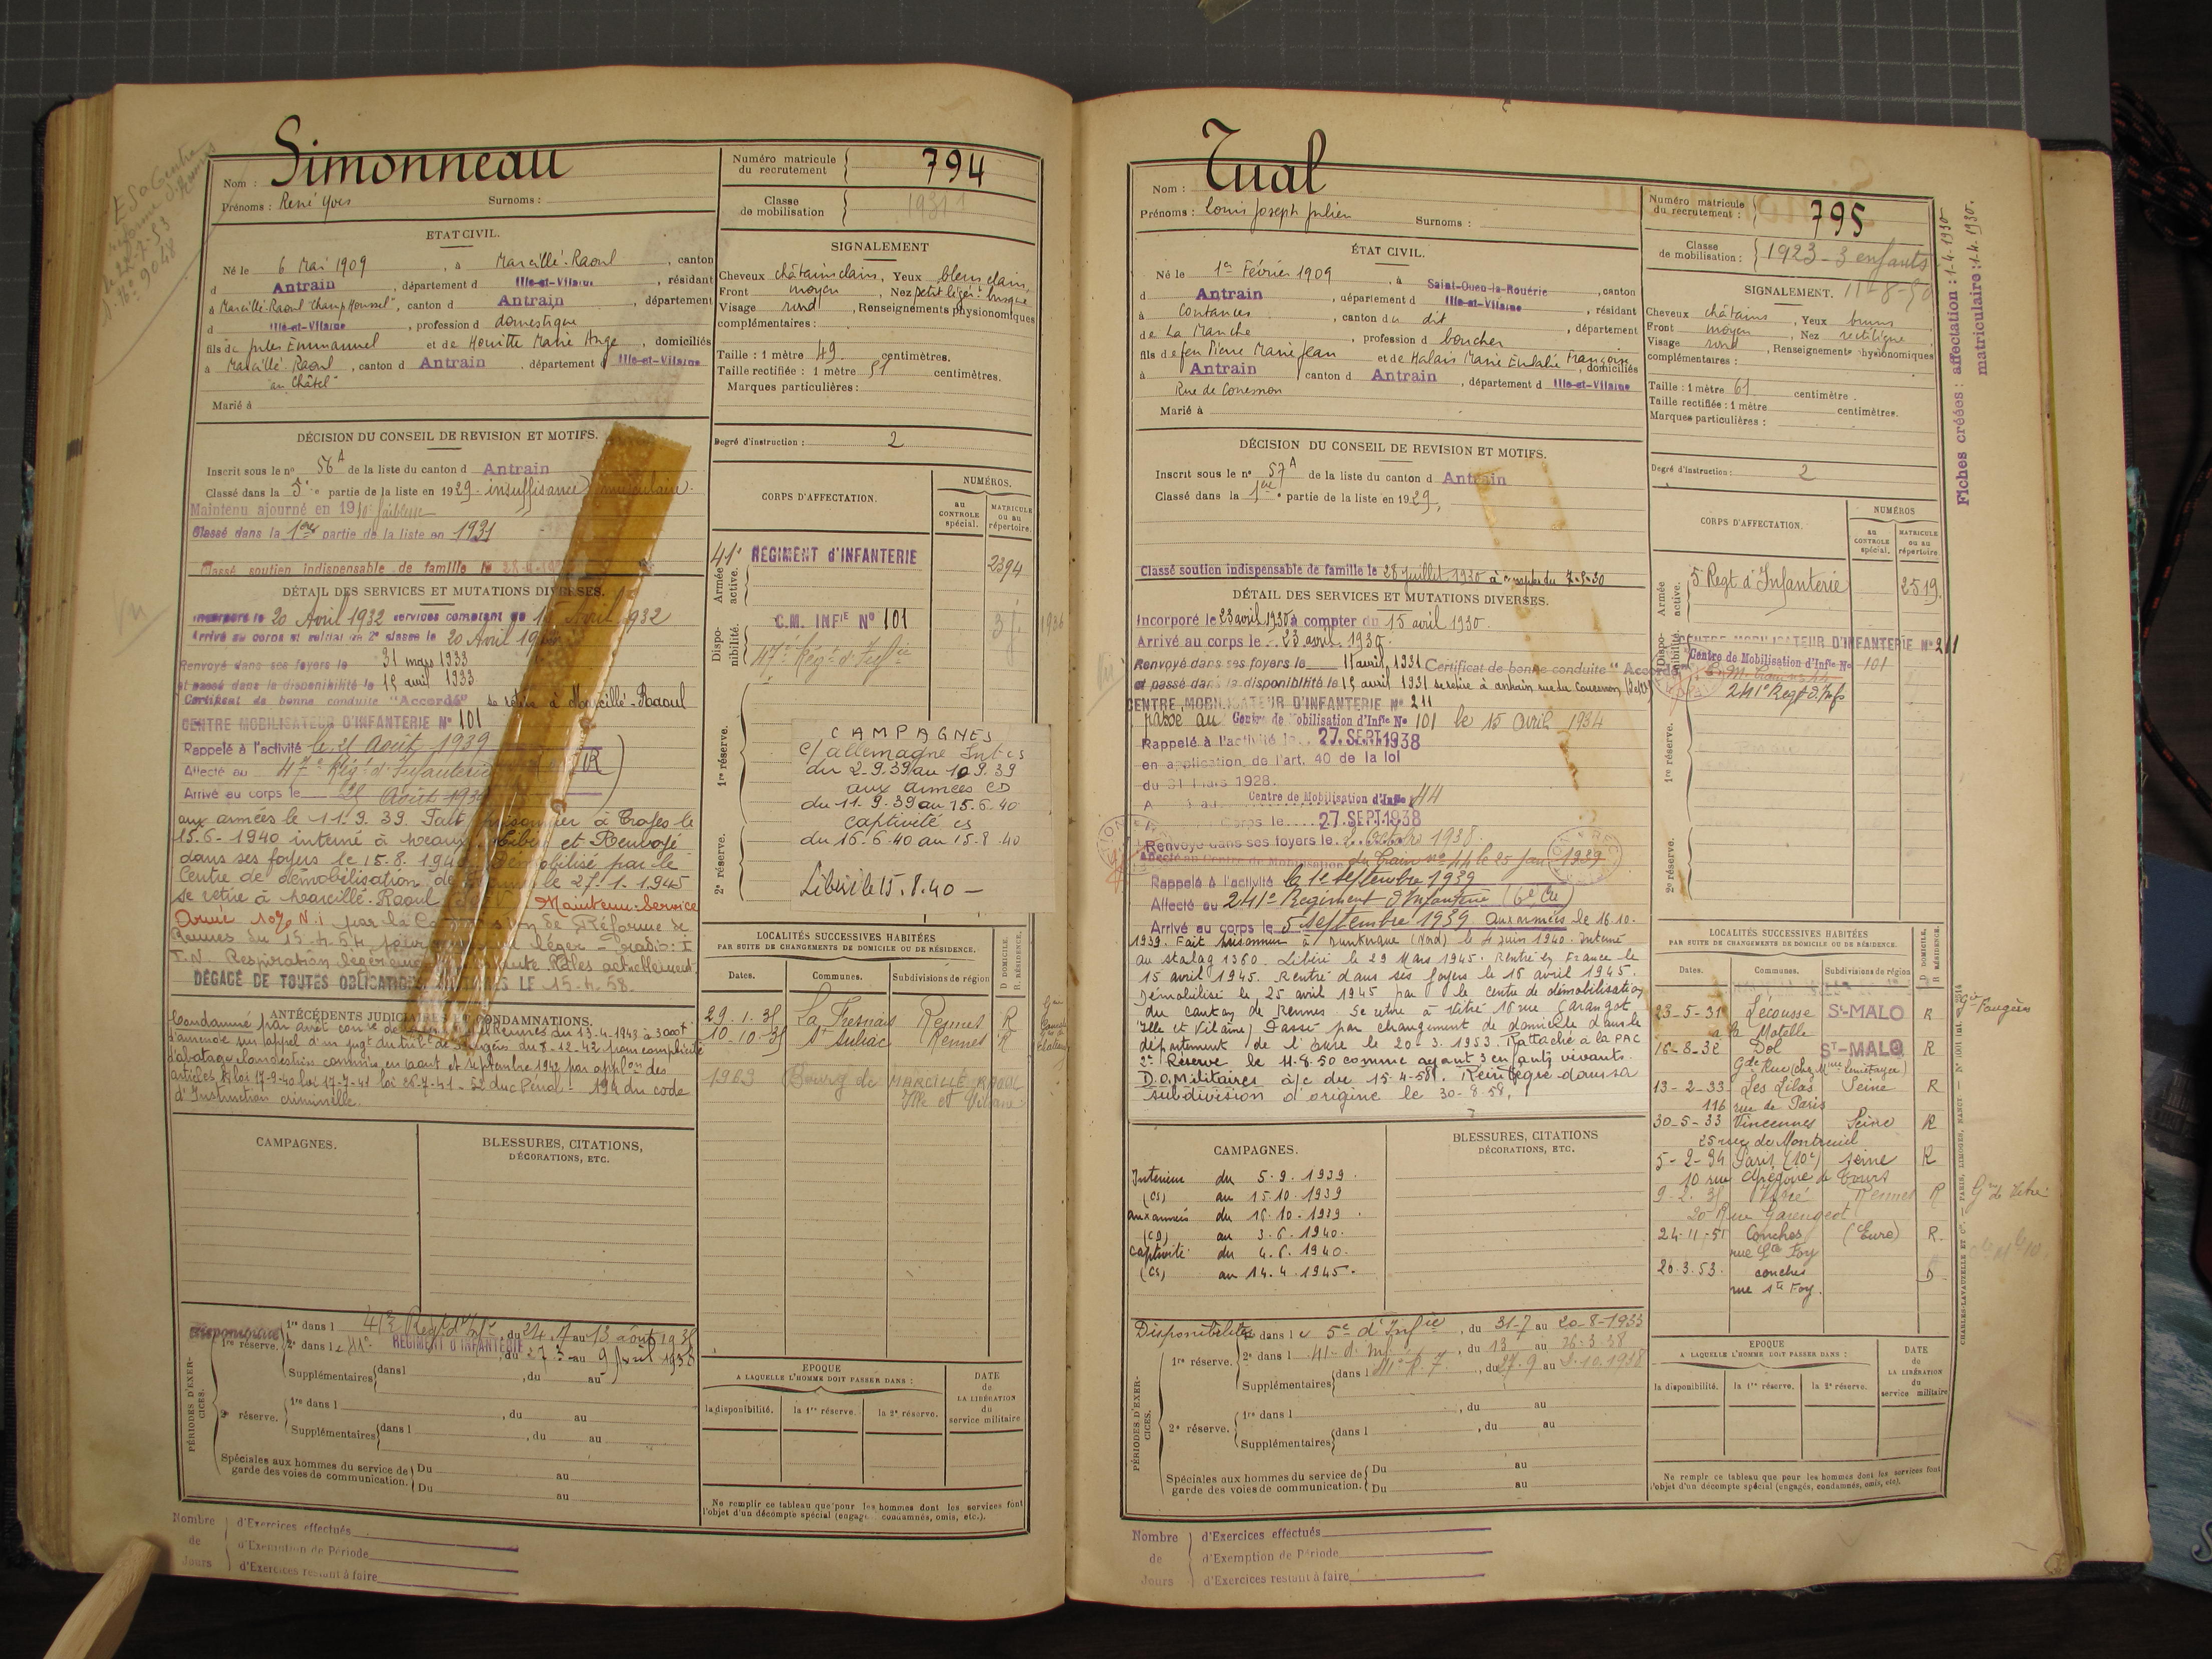 Simonneau
Nom :
Prénoms : René Yves Surnoms :
Numéro matricule du recrutement 794
Classe de mobilisation 1931
ETAT CIVIL.
Né le 6 Mai 1909, à Marcillé-Raoul, canton
d Antrain, département d Ille-et-Vilaine, résidant
à Marcillé-Raoul "Champ Houssel", canton d Antrain, département
d Ille-et-Vilaine, profession d domestique
fils de Jules Emmanuel et de Houitte Marie Ange, domiciliés
à Marcillé-Raoul, canton d Antrain, département d Ille-et-Vilaine
"au Châtel"
Marié à
SIGNALEMENT
Cheveux châtains clairs, Yeux bleus clairs,
Front moyen, Nez petit légèr. busqué
Visage rond, Renseignements physionomiques
complémentaires :
Taille : 1 mètre 49 centimètres.
Taille rectifiée : 1 mètre 51 centimètres.
Marques particulières :
Degré d'instruction : 2
DÉCISION DU CONSEIL DE REVISION ET MOTIFS.
Inscrit sous le n° 56 A de la liste du canton d Antrain
Classé dans la 5e partie de la liste en 1929 insuffisance musculaire.
Maintenu ajourné en 1930 faiblesse
Classé dans la 1ère partie de la liste en 1931
Classé soutien indispensable de famille le
DÉTAIL DES SERVICES ET MUTATIONS DIVERSES.
Incorporé le 20 Avril 1932 services comptant du 15 Avril 1932
Arrivé au corps et soldat de 2e classe le 20 Avril
Renvoyé dans ses foyers le 31 mars 1933
et passé dans la disponibilité le 15 avril 1933
Certificat de bonne conduite "Accordé" se retire à Marcillé-Raoul
CENTRE MOBILISATEUR D'INFANTERIE N° 101
Rappelé à l'activité le 25 Août 1939
Affecté au 47e Régt d'Infanterie
Arrivé au corps le 25 Août 1939
aux armées le 11.9.39. Fait prisonnier à Troyes le
15.6-1940 interné à Libéré et Renvoyé
dans ses foyers le 15.8.1940 Démobilisé par le
Centre de démobilisation de le 27.1.1945
se retire à Marcillé-Raoul Maintenu Service
Armé 10% N.i par la Commission de Réforme de
Rennes du 15.4.54 pour léger - Radio : I
I.N. Respiration légèrement Râles actuellement.
DÉGAGÉ DE TOUTES OBLIGATIONS LE 15.4.58.
CORPS D'AFFECTATION.
NUMÉROS.
au CONTROLE spécial.
MATRICULE ou au répertoire.
Armée active.
41e RÉGIMENT d'INFANTERIE 2394
Disponibilité.
C.M. INFIE N° 101
47e Régt d'Infie
1re réserve.
2e réserve.
CAMPAGNES
c/ allemagne Int cs
du 2.9.39 au 10 9.39
aux armées CD
du 11.9.39 au 15.6.40
captivité cs
du 16.6.40 au 15.8.40
Libéré le 15.8.40 -
ANTÉCÉDENTS JUDICIAIRES CONDAMNATIONS.
Rennes du 13-4-1943 à 3000f
d'amende sur appel d'un jugt du tribl de Fougères du 8-12-42 pour complicité
d'abatage clandestin commis en août et septembre 1942 par applon des
articles loi 17-9-40 loi 17-7-41 loi 26-7-41 - 52 du c Pénal - 194 du code
d'Instruction criminelle.
LOCALITÉS SUCCESSIVES HABITÉES
PAR SUITE DE CHANGEMENTS DE DOMICILE OU DE RÉSIDENCE.
Dates. Communes. Subdivisions de région D DOMICILE. R RÉSIDENCE.
29.1.35 La Fresnais Rennes R
10-10-35 St Suliac Rennes R
1963 Bourg de MARCILLÉ RAOUL
Ille et Vilaine
CAMPAGNES.
BLESSURES, CITATIONS,
DÉCORATIONS, ETC.
PÉRIODES D'EXERCICES.
1re réserve. 1re dans l 41e Régt d'Infie, du 24.7 au 13 août 1935
2e dans l e 41e RÉGIMENT D'INFANTERIE, du 27 3 au 9 Avril 1938
Supplémentaires dans l , du au
2e réserve. 1re dans l , du au
Supplémentaires dans l , du au
Spéciales aux hommes du service de garde des voies de communication. Du au
Du au
EPOQUE
A LAQUELLE L'HOMME DOIT PASSER DANS :
la disponibilité. la 1re réserve. la 2e réserve.
DATE de LA LIBÉRATION du service militaire
Ne remplir ce tableau que pour les hommes dont les services font
l'objet d'un décompte spécial (engagés, condamnés, omis, etc.).
Nombre de Jours
d'Exercices effectués
d'Exemption de Période
d'Exercices restant à faire
Tual
Nom :
Prénoms : Louis Joseph Julien Surnoms :
Numéro matricule du recrutement : 795
Classe de mobilisation : 1923 - 3 enfants
11-8-50
ÉTAT CIVIL.
Né le 1er Février 1909, à Saint-Ouen-la-Rouërie, canton
d Antrain, département d Ille-et-Vilaine, résidant
à Coutances, canton du dit, département
de La Manche, profession d boucher
fils de feu Pierre Marie Jean et de Halais Marie Eulalie Françoise, domiciliés
à Antrain canton d Antrain, département d Ille-et-Vilaine
Rue de Couesnon
Marié à
SIGNALEMENT.
Cheveux châtains, Yeux bruns
Front moyen, Nez rectiligne
Visage rond, Renseignements physionomiques
complémentaires :
Taille : 1 mètre 61 centimètre.
Taille rectifiée : 1 mètre centimètres.
Marques particulières :
Degré d'instruction : 2
Fiches créées : affectation : 1-4-1930
matriculaire : 1-4-1930.
DÉCISION DU CONSEIL DE REVISION ET MOTIFS.
Inscrit sous le n° 57 A de la liste du canton d Antrain
Classé dans la 1ère partie de la liste en 1929,
Classé soutien indispensable de famille le 28 Juillet 1930 à compter du 7-5-30
DÉTAIL DES SERVICES ET MUTATIONS DIVERSES.
Incorporé le 23 avril 1930 à compter du 15 avril 1930.
Arrivé au corps le 23 avril 1930.
Renvoyé dans ses foyers le 11 avril 1931 Certificat de bonne conduite "Accordé"
et passé dans la disponibilité le 15 avril 1931 se retire à antrain rue du Couesnon
CENTRE MOBILISATEUR D'INFANTERIE N° 211
passé au Centre de Mobilisation d'Infie N° 101 le 15 avril 1934
Rappelé à l'activité le 27. SEPT 1938
en application de l'art. 40 de la loi
du 31 Mars 1928.
Centre de Mobilisation d'Infie 44
Corps le 27. SEPT 1938
Renvoyé dans ses foyers le 2 Octobre 1938
Affecté au Centre de Mobilisation du Train n° 44 le 25 Jan 1939
Rappelé à l'activité le 1er septembre 1939
Affecté au 241e Régiment d'Infanterie (6e Cie)
Arrivé au corps le 5 septembre 1939 aux armées le 16.10.
1939. Fait prisonnier à Dunkerque (Nord) le 4 juin 1940. Interné
au stalag 1360. Libéré le 29 Mars 1945. Rentré en France le
15 avril 1945. Rentré dans ses foyers le 16 avril 1945.
Démobilisé le 25 avril 1945 par le centre de démobilisation
du canton de Rennes. Se retire à Vitré 16 rue Garangot
Ille et Vilaine) Passé par changement de domicile dans le
département de l'Eure le 20-3-1953. Rattaché à la PAC
2e Réserve le 11-8-50 comme ayant 3 enfants vivants.
D.O. Militaires à/c du 15-4-58. Réintégré dans sa
subdivision d'origine le 30-8-58.
CORPS D'AFFECTATION.
NUMÉROS
au CONTROLE spécial.
MATRICULE ou au répertoire.
Armée active.
5e Regt d'Infanterie 2519.
Disponibilité.
CENTRE MOBILISATEUR D'INFANTERIE N° 211
Centre de Mobilisation d'Infie N° 101
241e Regt d'Inf
1re réserve.
2e réserve.
LOCALITÉS SUCCESSIVES HABITÉES
PAR SUITE DE CHANGEMENTS DE DOMICILE OU DE RÉSIDENCE.
Dates. Communes. Subdivisions de région D DOMICILE. R RÉSIDENCE.
23-5-31 Lécousse ST-MALO R
à la Motelle
16-8-32 Dol ST-MALO R
Gde Rue
13-2-33 Les Lilas Seine R
116 rue de Paris
30-5-33 Vincennes Seine R
25 rue de Montreuil
5-2-34 Paris (10e) seine R
10 rue Grégoire de Tours
9-2-35 Vitré Rennes R
20 Rue Garengeot
24-11-51 Conches (Eure) R
rue Ste Foy
26.3.53. conches D
rue Ste Foy.
CAMPAGNES.
Intérieur du 5.9.1939.
(CS) au 15.10.1939
aux armées du 16.10.1939.
(CD) au 3.6.1940.
captivité du 4.6.1940.
(CS) au 14.4.1945.
BLESSURES, CITATIONS
DÉCORATIONS, ETC.
PÉRIODES D'EXERCICES.
Disponibilité dans l e 5e d'Infie, du 31-7 au 20-8-1933
1re réserve. 2e dans l 41e d'Inf, du 13 au 26-3-38
Supplémentaires dans l , du 27.9 au 2.10.1938
2e réserve. 1re dans l , du au
Supplémentaires dans l , du au
Spéciales aux hommes du service de garde des voies de communication. Du au
Du au
EPOQUE
A LAQUELLE L'HOMME DOIT PASSER DANS :
la disponibilité. la 1re réserve. la 2e réserve.
DATE de LA LIBÉRATION du service militaire
Ne remplir ce tableau que pour les hommes dont les services font
l'objet d'un décompte spécial (engagés, condamnés, omis, etc).
CHARLES-LAVAUZELLE ET Cie. — PARIS, LIMOGES, NANCY
Nombre de Jours
d'Exercices effectués
d'Exemption de Période
d'Exercices restant à faire